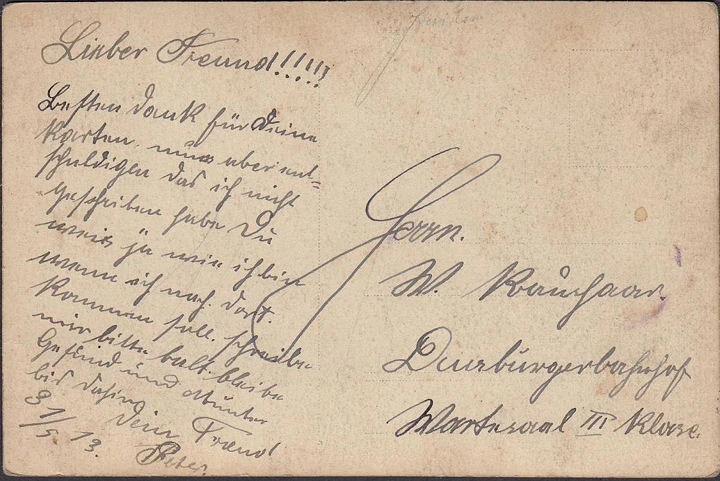 Lieber Freund!!!!!
Besten Dank für Deine
Karten. mus aber ent=
schuldigen das ich nicht
geschrieben habe Du
weis ja wie ich bin
wenn ich nach dort.
kommen soll. schreibe
mir bitte balt. bleibe
Gesund und Munter
bis dahin
Dein Freund
31/5 13. Peter.
Herrn.
W.
Duisburgerbahnhof
Wartesaal III Klase.